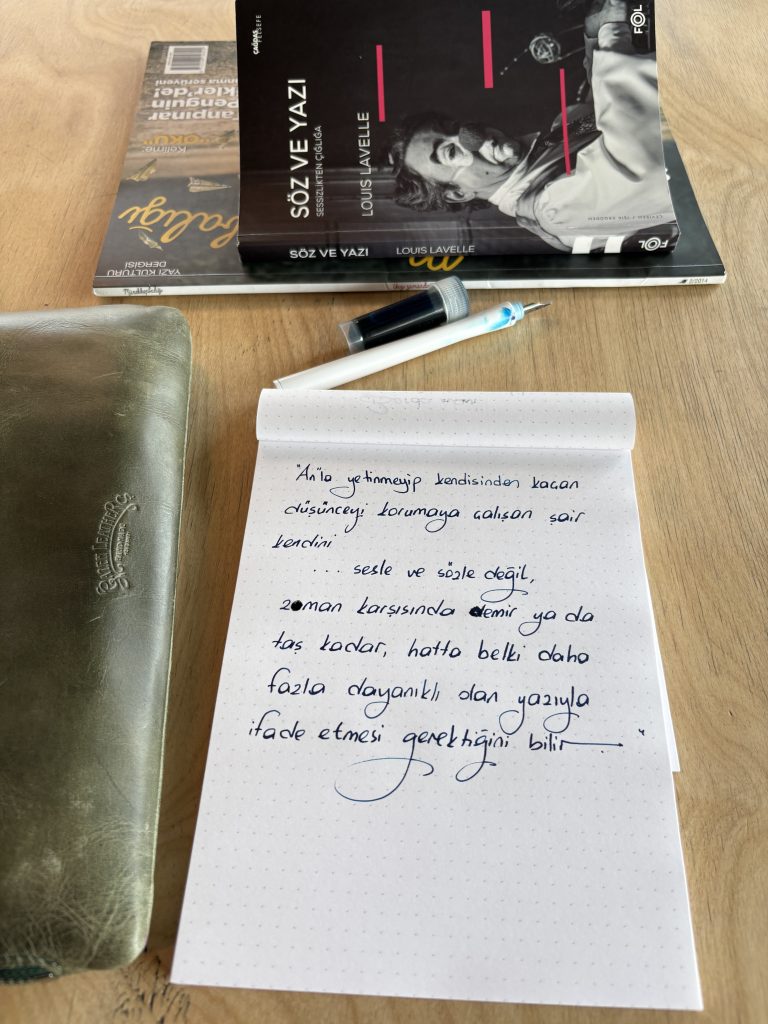 ÇAĞDAŞ
FELSEFE
SÖZ VE YAZI
SESSİZLİKTEN ÇIĞLIĞA
LOUIS LAVELLE
FOL
SÖZ VE YAZI
LOUIS LAVELLE
FOL
anpınar
Penguin
kler'de!
Kelime:
"OKU"
balığı
YAZI KÜLTÜRÜ
DERGİSİ
Mürekkepbalığı
2/2014
"An"la yetinmeyip kendisinden kaçan
düşünceyi korumaya çalışan şair
kendini
... sesle ve sözle değil,
zaman karşısında demir ya da
taş kadar, hatta belki daha
fazla dayanıklı olan yazıyla
ifade etmesi gerektiğini bilir "